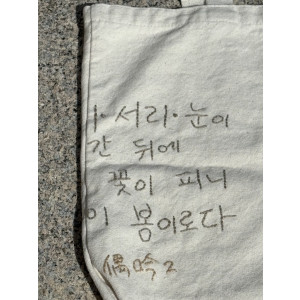 서리·눈이
간 뒤에
꽃이 피니
이 봄이로다
偶吟 2